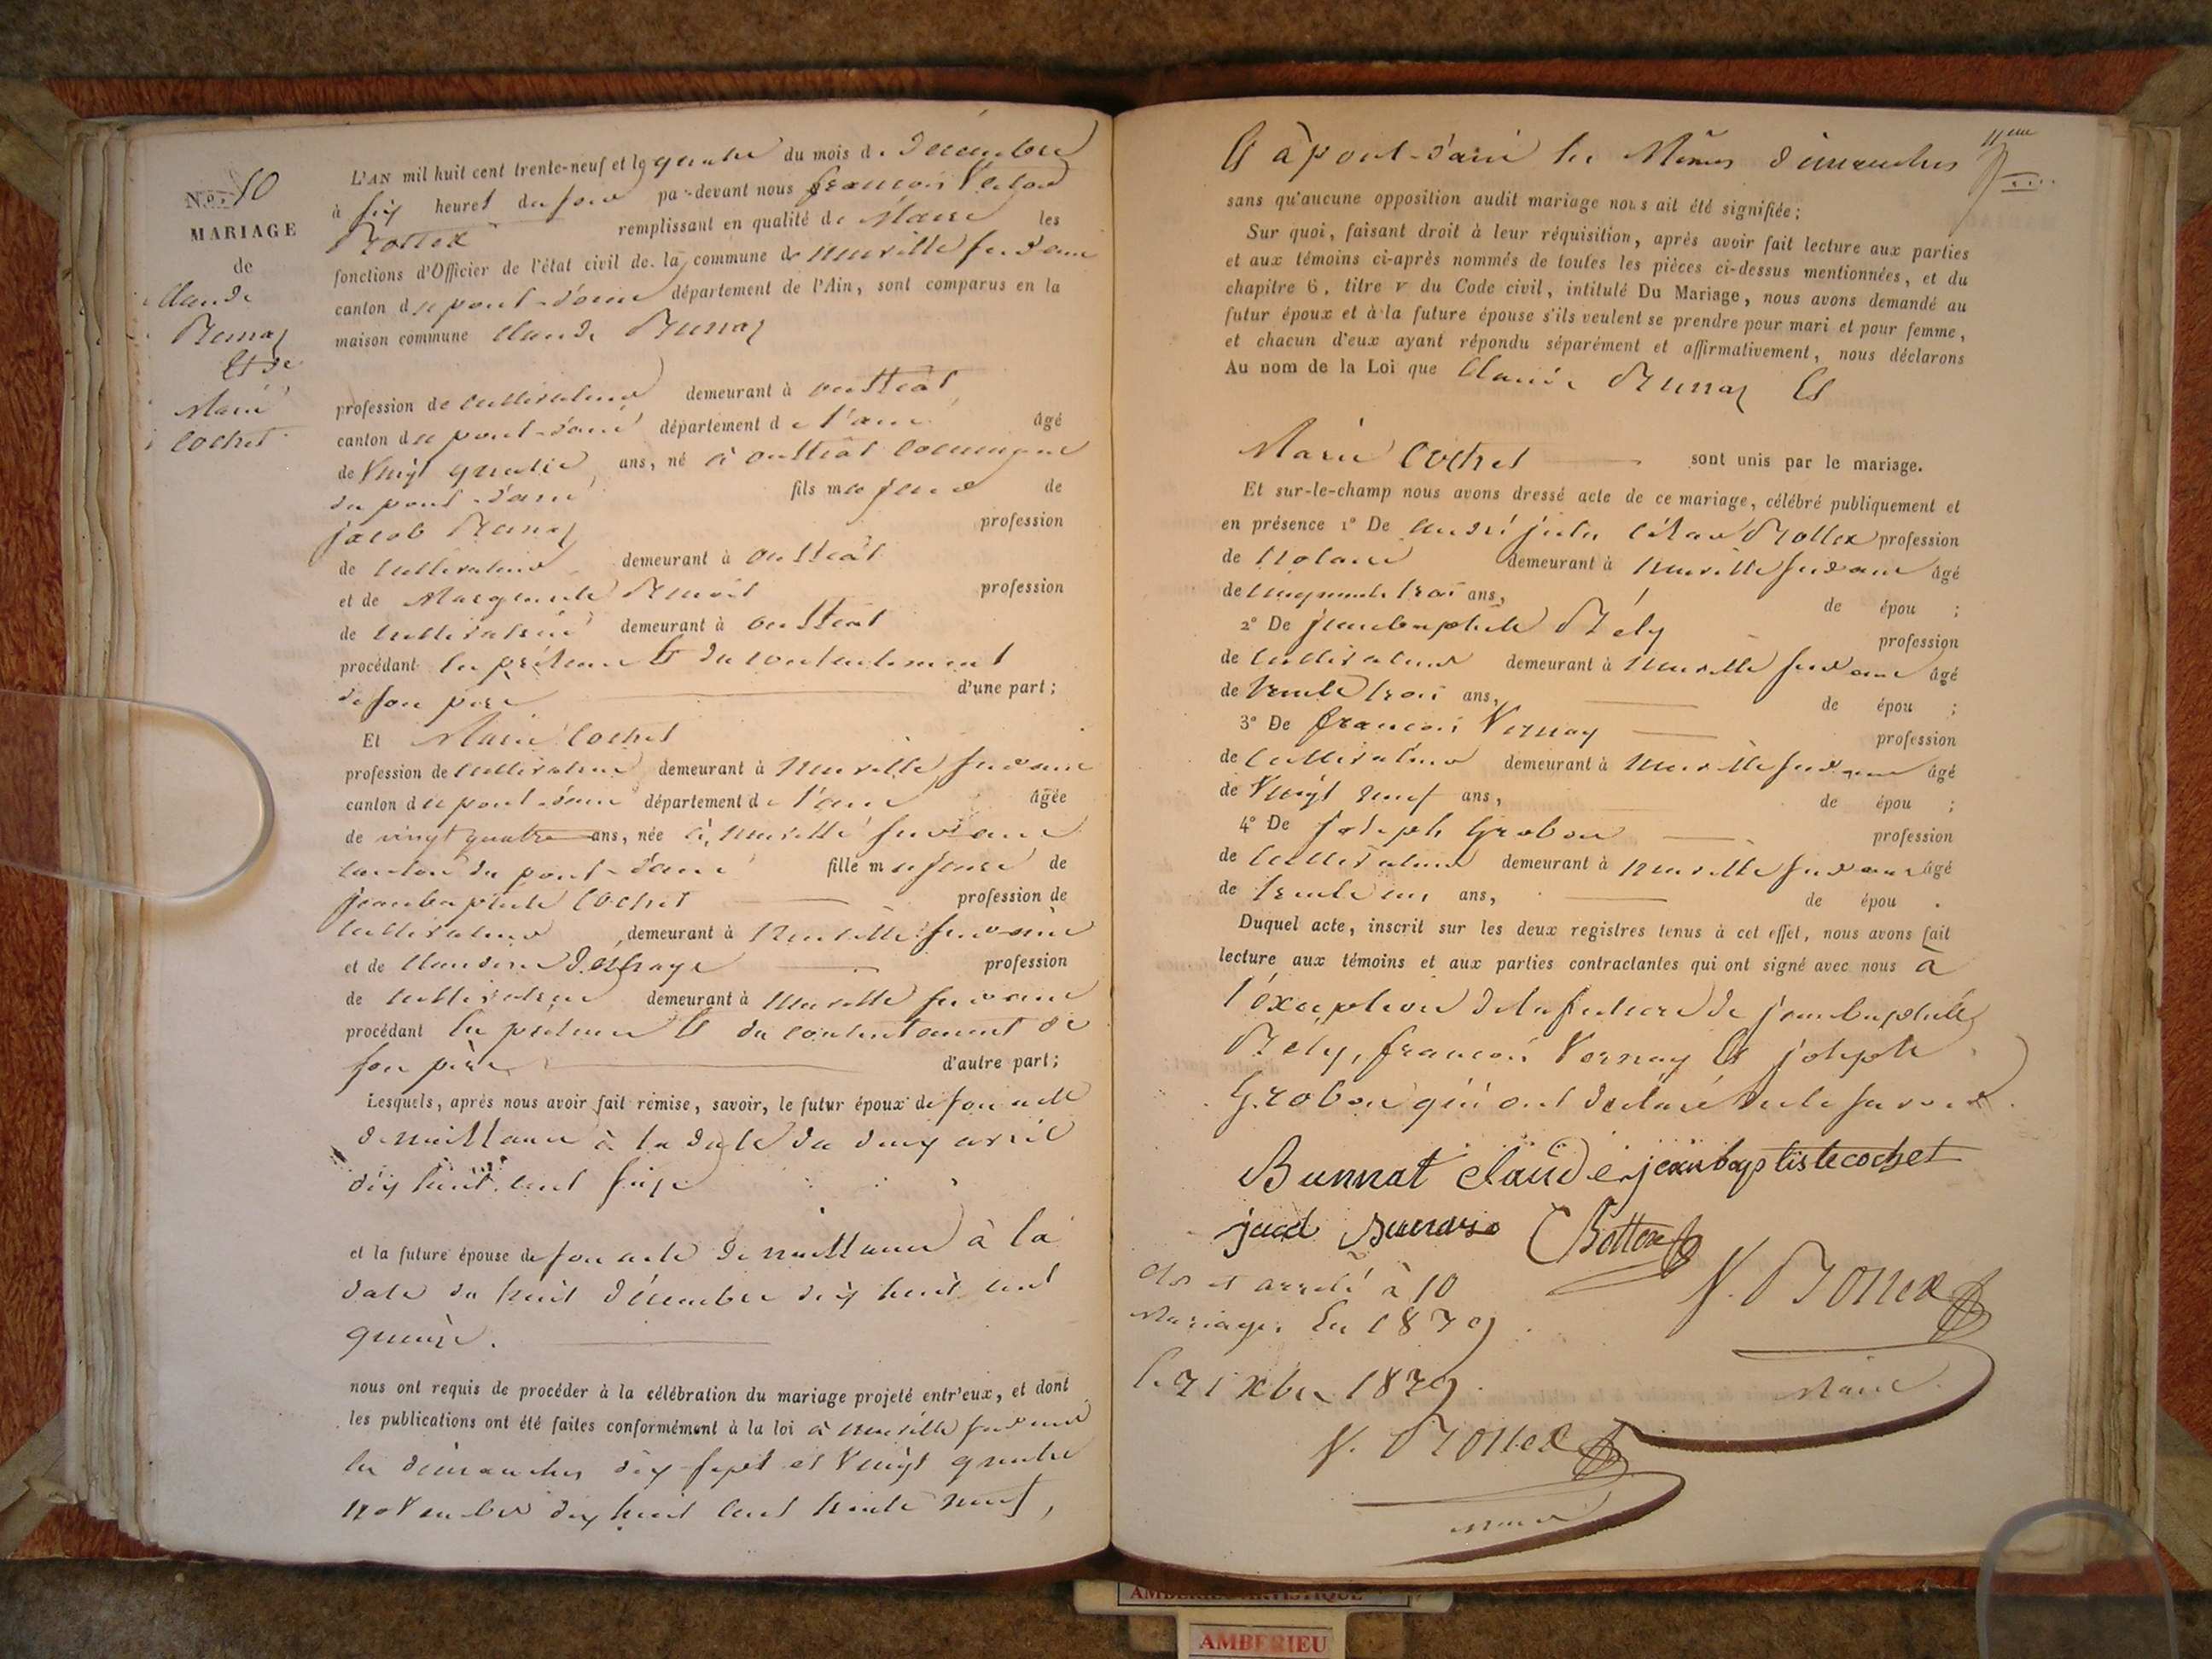 No. 10
MARIAGE
de
Claude
Bunaz
Et de
Marie
Cochet
L'AN mil huit cent trente-neuf et le quatre du mois de Décembre
à six heures du soir par-devant nous françois
Bottex remplissant en qualité de Maire les
fonctions d'Officier de l'état civil de la commune de neuville sur dain
canton du pont-d'ain département de l'Ain, sont comparus en la
maison commune Claude Bunaz
profession de cultivateur demeurant à oussiat
canton du pont-d'ain département de l'ain âgé
de Vingt quatre ans, né à oussiat commune
du pont-d'ain fils majeur de
jacob Bunaz profession
de Cultivateur demeurant à oussiat
et de Marguerite Benoit profession
de cultivatrice demeurant à oussiat
procédant en présence Et du contentement
de son père d'une part;
Et Marie Cochet
profession de cultivatrice demeurant à neuville sur dain
canton du pont-d'ain département de l'ain âgée
de vingt quatre ans, née à neuville sur dain
canton du pont-d'ain fille majeure de
jeanbaptiste Cochet profession de
cultivateur demeurant à neuville sur dain
et de Claudine profession
de cultivatrice demeurant à neuville sur dain
procédant en présence Et du contentement de
son père d'autre part;
Lesquels, après nous avoir fait remise, savoir, le futur époux de son acte
de naissance à la date du avril
dix huit cent seize
et la future épouse de son acte de naissance à la
date du huit décembre dix huit cent
quinze.
nous ont requis de procéder à la célébration du mariage projeté entr'eux, et dont
les publications ont été faites conformément à la loi à neuville sur dain
les dimanches dix sept et Vingt quatre
novembre dix huit cent trente neuf,
11eme
Et à pont-d'ain les Mêmes dimanches
sans qu'aucune opposition audit mariage nous ait été signifiée;
Sur quoi, faisant droit à leur réquisition, après avoir fait lecture aux parties
et aux témoins ci-après nommés de toutes les pièces ci-dessus mentionnées, et du
chapitre 6, titre v du Code civil, intitulé Du Mariage, nous avons demandé au
futur époux et à la future épouse s'ils veulent se prendre pour mari et pour femme,
et chacun d'eux ayant répondu séparément et affirmativement, nous déclarons
Au nom de la Loi que Claude Bunaz Et
Marie Cochet sont unis par le mariage.
Et sur-le-champ nous avons dressé acte de ce mariage, célébré publiquement et
en présence 1° De andré jules César Bottex profession
de Notaire demeurant à neuville sur dain âgé
de cinquante trois ans, de épou ;
2° De jeanbaptiste Bély profession
de cultivateur demeurant à neuville sur dain âgé
de trente trois ans, de épou ;
3° De françois Vernay profession
de cultivateur demeurant à neuville sur dain âgé
de Vingt neuf ans, de épou ;
4° De joseph Grobon profession
de cultivateur demeurant à neuville sur dain âgé
de trente un ans, de épou .
Duquel acte, inscrit sur les deux registres tenus à cet effet, nous avons fait
lecture aux témoins et aux parties contractantes qui ont signé avec nous à
l'exception de la future de jeanbaptiste
Bely, françois Vernay Et joseph
Grobon qui ont déclaré ne le savoir.
Bunnat claude jeanbaptistecochet
Bottex
V. Bottex
Maire
Clos et arrêté à 10
Mariages En 1839
le 31 Xbre 1839
V. Bottex
Maire
AMBERIEU